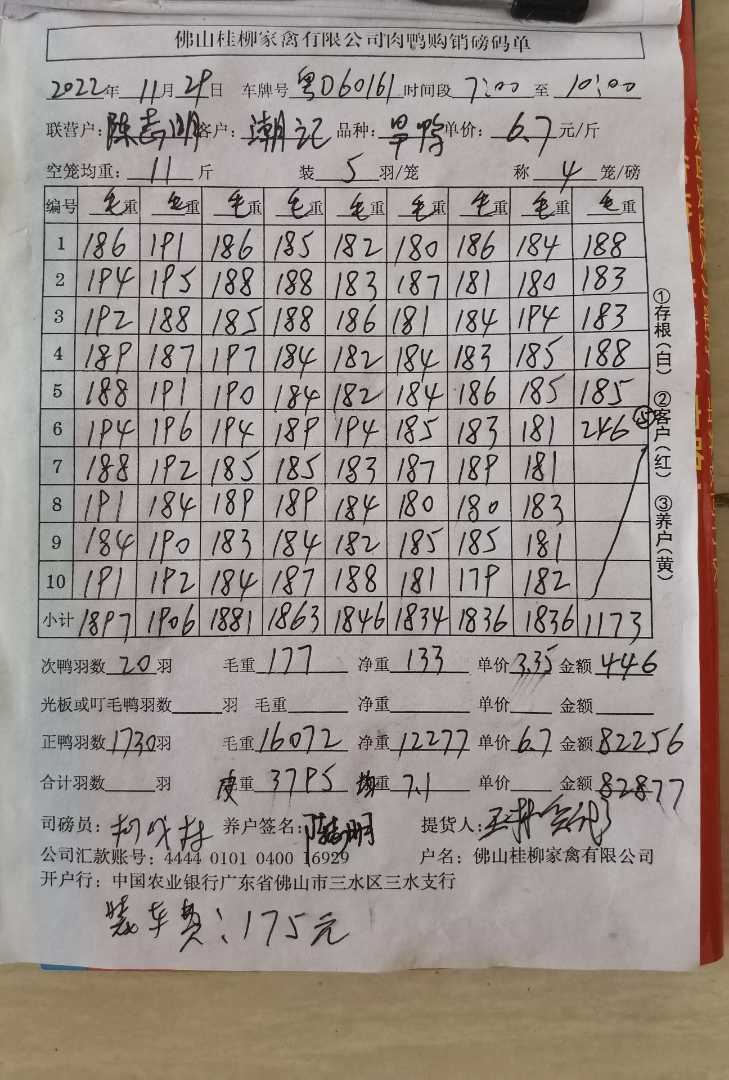 佛山桂柳家禽有限公司肉鸭购销磅码单
2022年 11月 29日 车牌号 粤D60161 时间段 7:00 至 10:00
联营户: 陈志明 客户: 潮记 品种: 旱鸭 单价: 6.7 元/斤
空笼均重: 11 斤 装 5 羽/笼 称 4 笼/磅
编号 毛重 毛重 毛重 毛重 毛重 毛重 毛重 毛重 毛重
1 186 191 186 185 182 180 186 184 188
2 194 195 188 188 183 187 181 180 183
3 192 188 185 188 186 181 184 194 183
4 189 187 197 184 182 184 183 185 188
5 188 191 190 184 182 184 186 185 185
6 194 196 194 189 194 185 183 181 246 ⑤
7 188 192 185 185 183 187 189 181
8 191 184 189 189 184 180 180 183
9 184 190 183 184 182 185 185 181
10 191 192 184 187 188 181 179 182
小计 1897 1906 1881 1863 1846 1834 1836 1836 1173
①存根(白) ②客户(红) ③养户(黄)
次鸭羽数 20 羽 毛重 177 净重 133 单价 3.35 金额 446
光板或叮毛鸭羽数 羽 毛重 净重 单价 金额
正鸭羽数 1730 羽 毛重 16072 净重 12277 单价 6.7 金额 82256
合计羽数 羽 皮重 3795 均重 7.1 单价 金额 82877
司磅员: 养户签名: 陈志明 提货人:
公司汇款账号: 4444 0101 0400 16929 户名: 佛山桂柳家禽有限公司
开户行: 中国农业银行广东省佛山市三水区三水支行
装车费: 175元